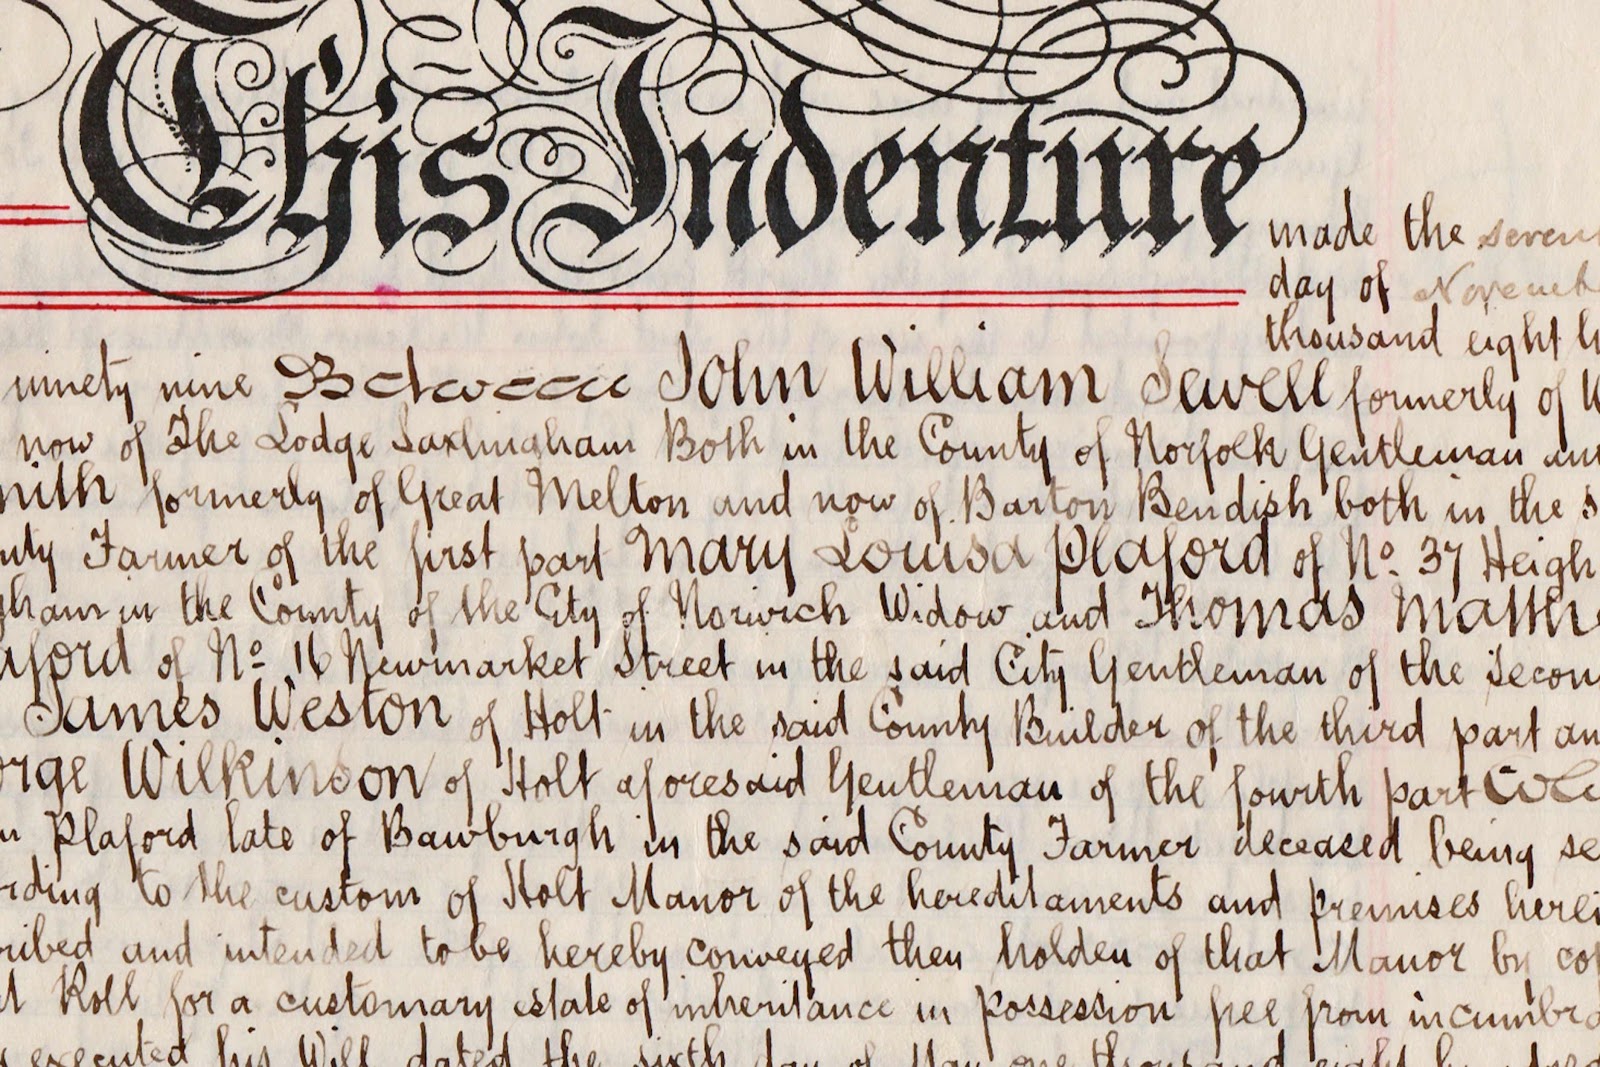 This Indenture
made the
day of
thousand eight
ninety nine Between John William Sewell formerly of
now of The Lodge Saxlingham Both in the County of Norfolk Gentleman
formerly of Great Melton and now of Barton Bendish both in the
Farmer of the first part Mary Louisa Plaford of No. 37
in the County of the City of Norwich Widow and Thomas
of No 16 Newmarket Street in the said City Gentleman of the
James Weston of Holt in the said County Builder of the third part
Wilkinson of Holt aforesaid Gentleman of the fourth part
Plaford late of Bawburgh in the said County Farmer deceased being
to the custom of Holt Manor of the hereditaments and premises
and intended to be hereby conveyed then holden of that Manor by
Roll for a customary estate of inheritance in possession free from
executed his Will dated the sixth day of May one thousand eight